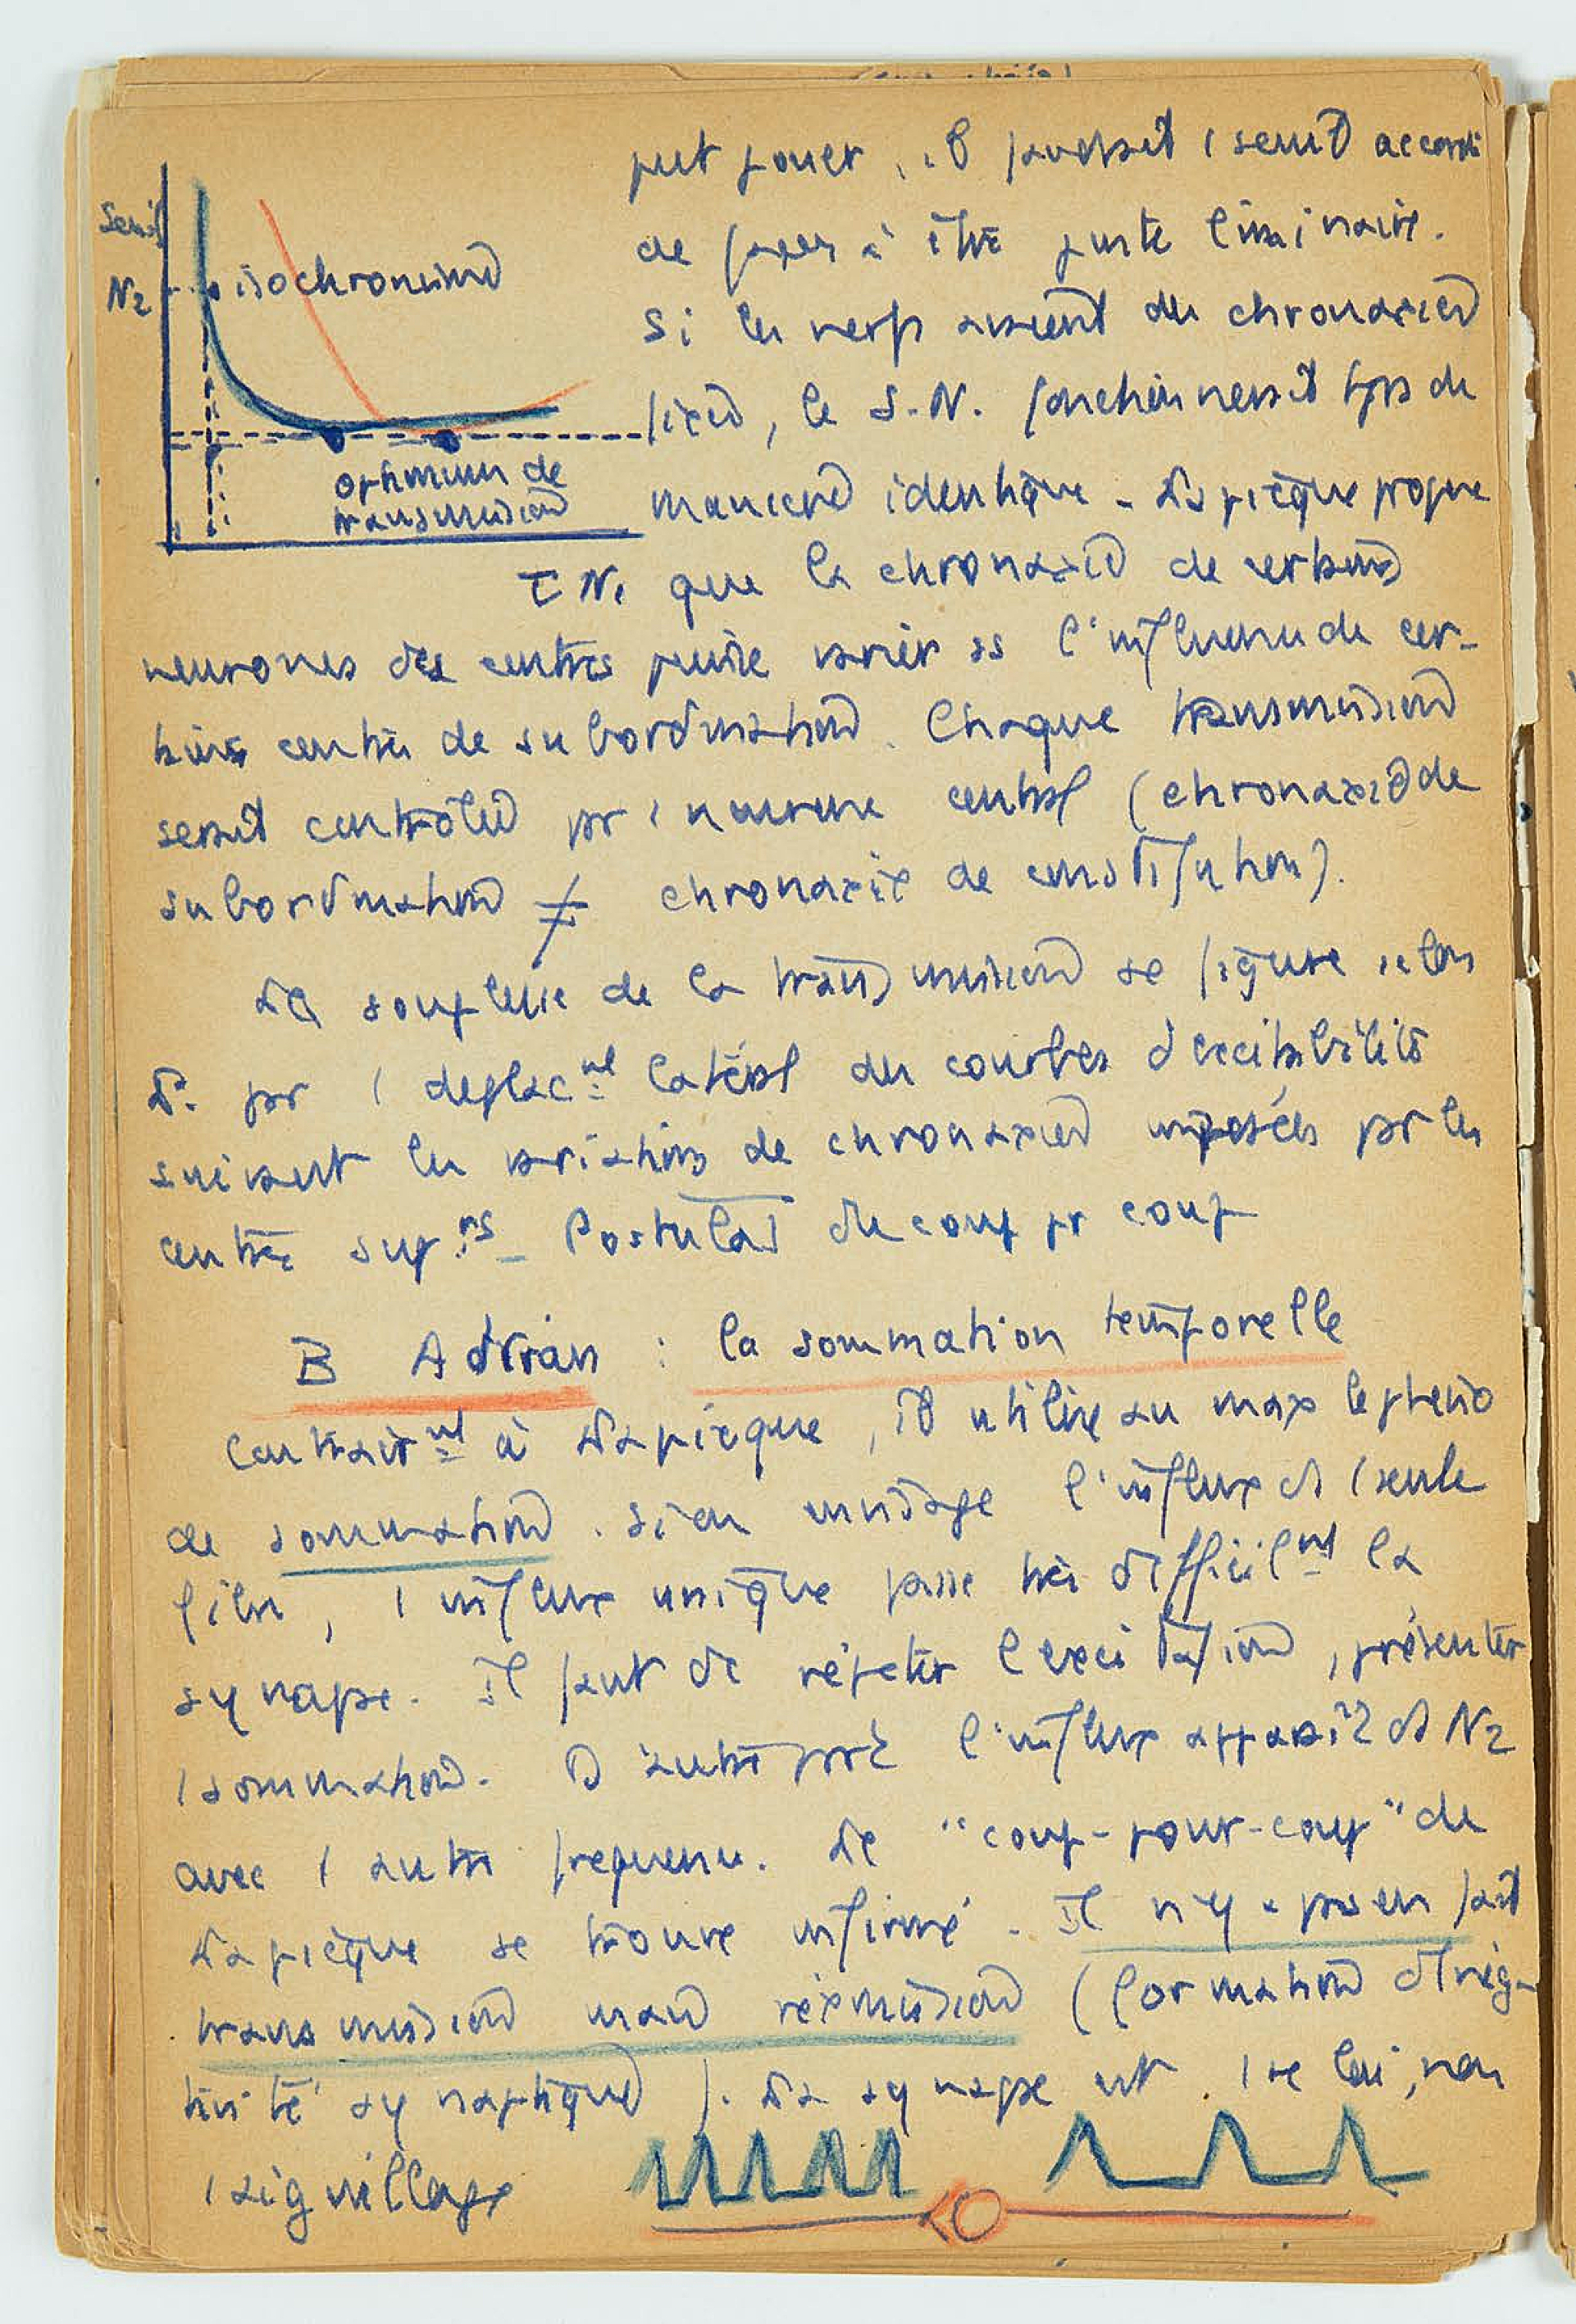 Seuil
N2
isochronisme
optimum de
transmission
τ N1
peut jouer, il faudrait 1 seuil accordé
de façon à être juste liminaire.
Si les nerfs avaient des chronaxies
fixes, le S.N. fonctionnerait tjrs de
manière identique - Lapicque
que la chronaxie de certains
neurones des centres puisse varier ss l'influence de cer-
tains centres de subordination. Chaque transmission
serait contrôlée pr 1 neurone central (chronaxie de
subordination ≠ chronaxie de constitution).
La souplesse de la transmission se figure selon
L. pr 1 déplacnt latéral des courbes d'excitabilité
suivant les variations de chronaxies imposées pr les
centres suprs - Postulat du coup pr coup
B Adrian : la sommation temporelle
Contrairnt à Lapicque, il utilise au max le phéno
de sommation. Si on envisage l'influx ds 1 seule
fibre, 1 influx unique passe très difficilnt la
synapse. Il faut dc répéter l'excitation, présenter
1 sommation. D'autre part l'influx apparaît ds N2
avec 1 autre fréquence. Le "coup-pour-coup" de
Lapicque se trouve infirmé - Il n'y a pas en fait
transmission mais réémission (formation d'
synaptique). La synapse est 1 relai, non
1 aiguillage